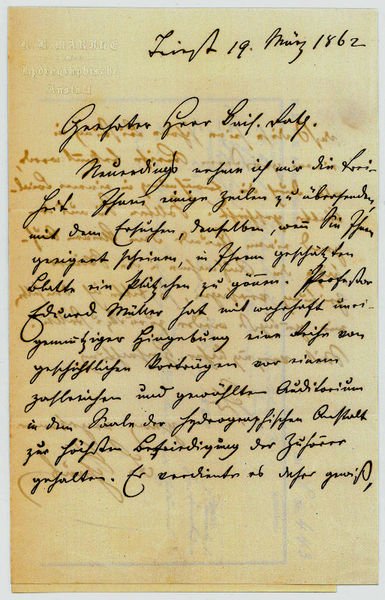 K. K. MARINE
Hydrographische
Anstalt
Triest 19. März 1862
Geehrter Herr Kais. Rath.
Neuerdings nehme ich mir die Frei-
heit Ihnen einige Zeilen zu übersenden,
mit dem Ersuchen, denselben, wenn Sie Ihnen
geeignet scheinen, in Ihrem geschätzten
Blatte ein Plätzchen zu gönnen. Professor
Eduard Müller hat mit wahrhaft unei-
gennütziger Hingebung eine Reihe von
geschichtlichen Vorträgen vor einem
zahlreichen und gewählten Auditorium
in dem Saale der hydrographischen Anstalt
zur höchsten Befriedigung der Zuhörer
gehalten. Er verdiente es daher gewiß,